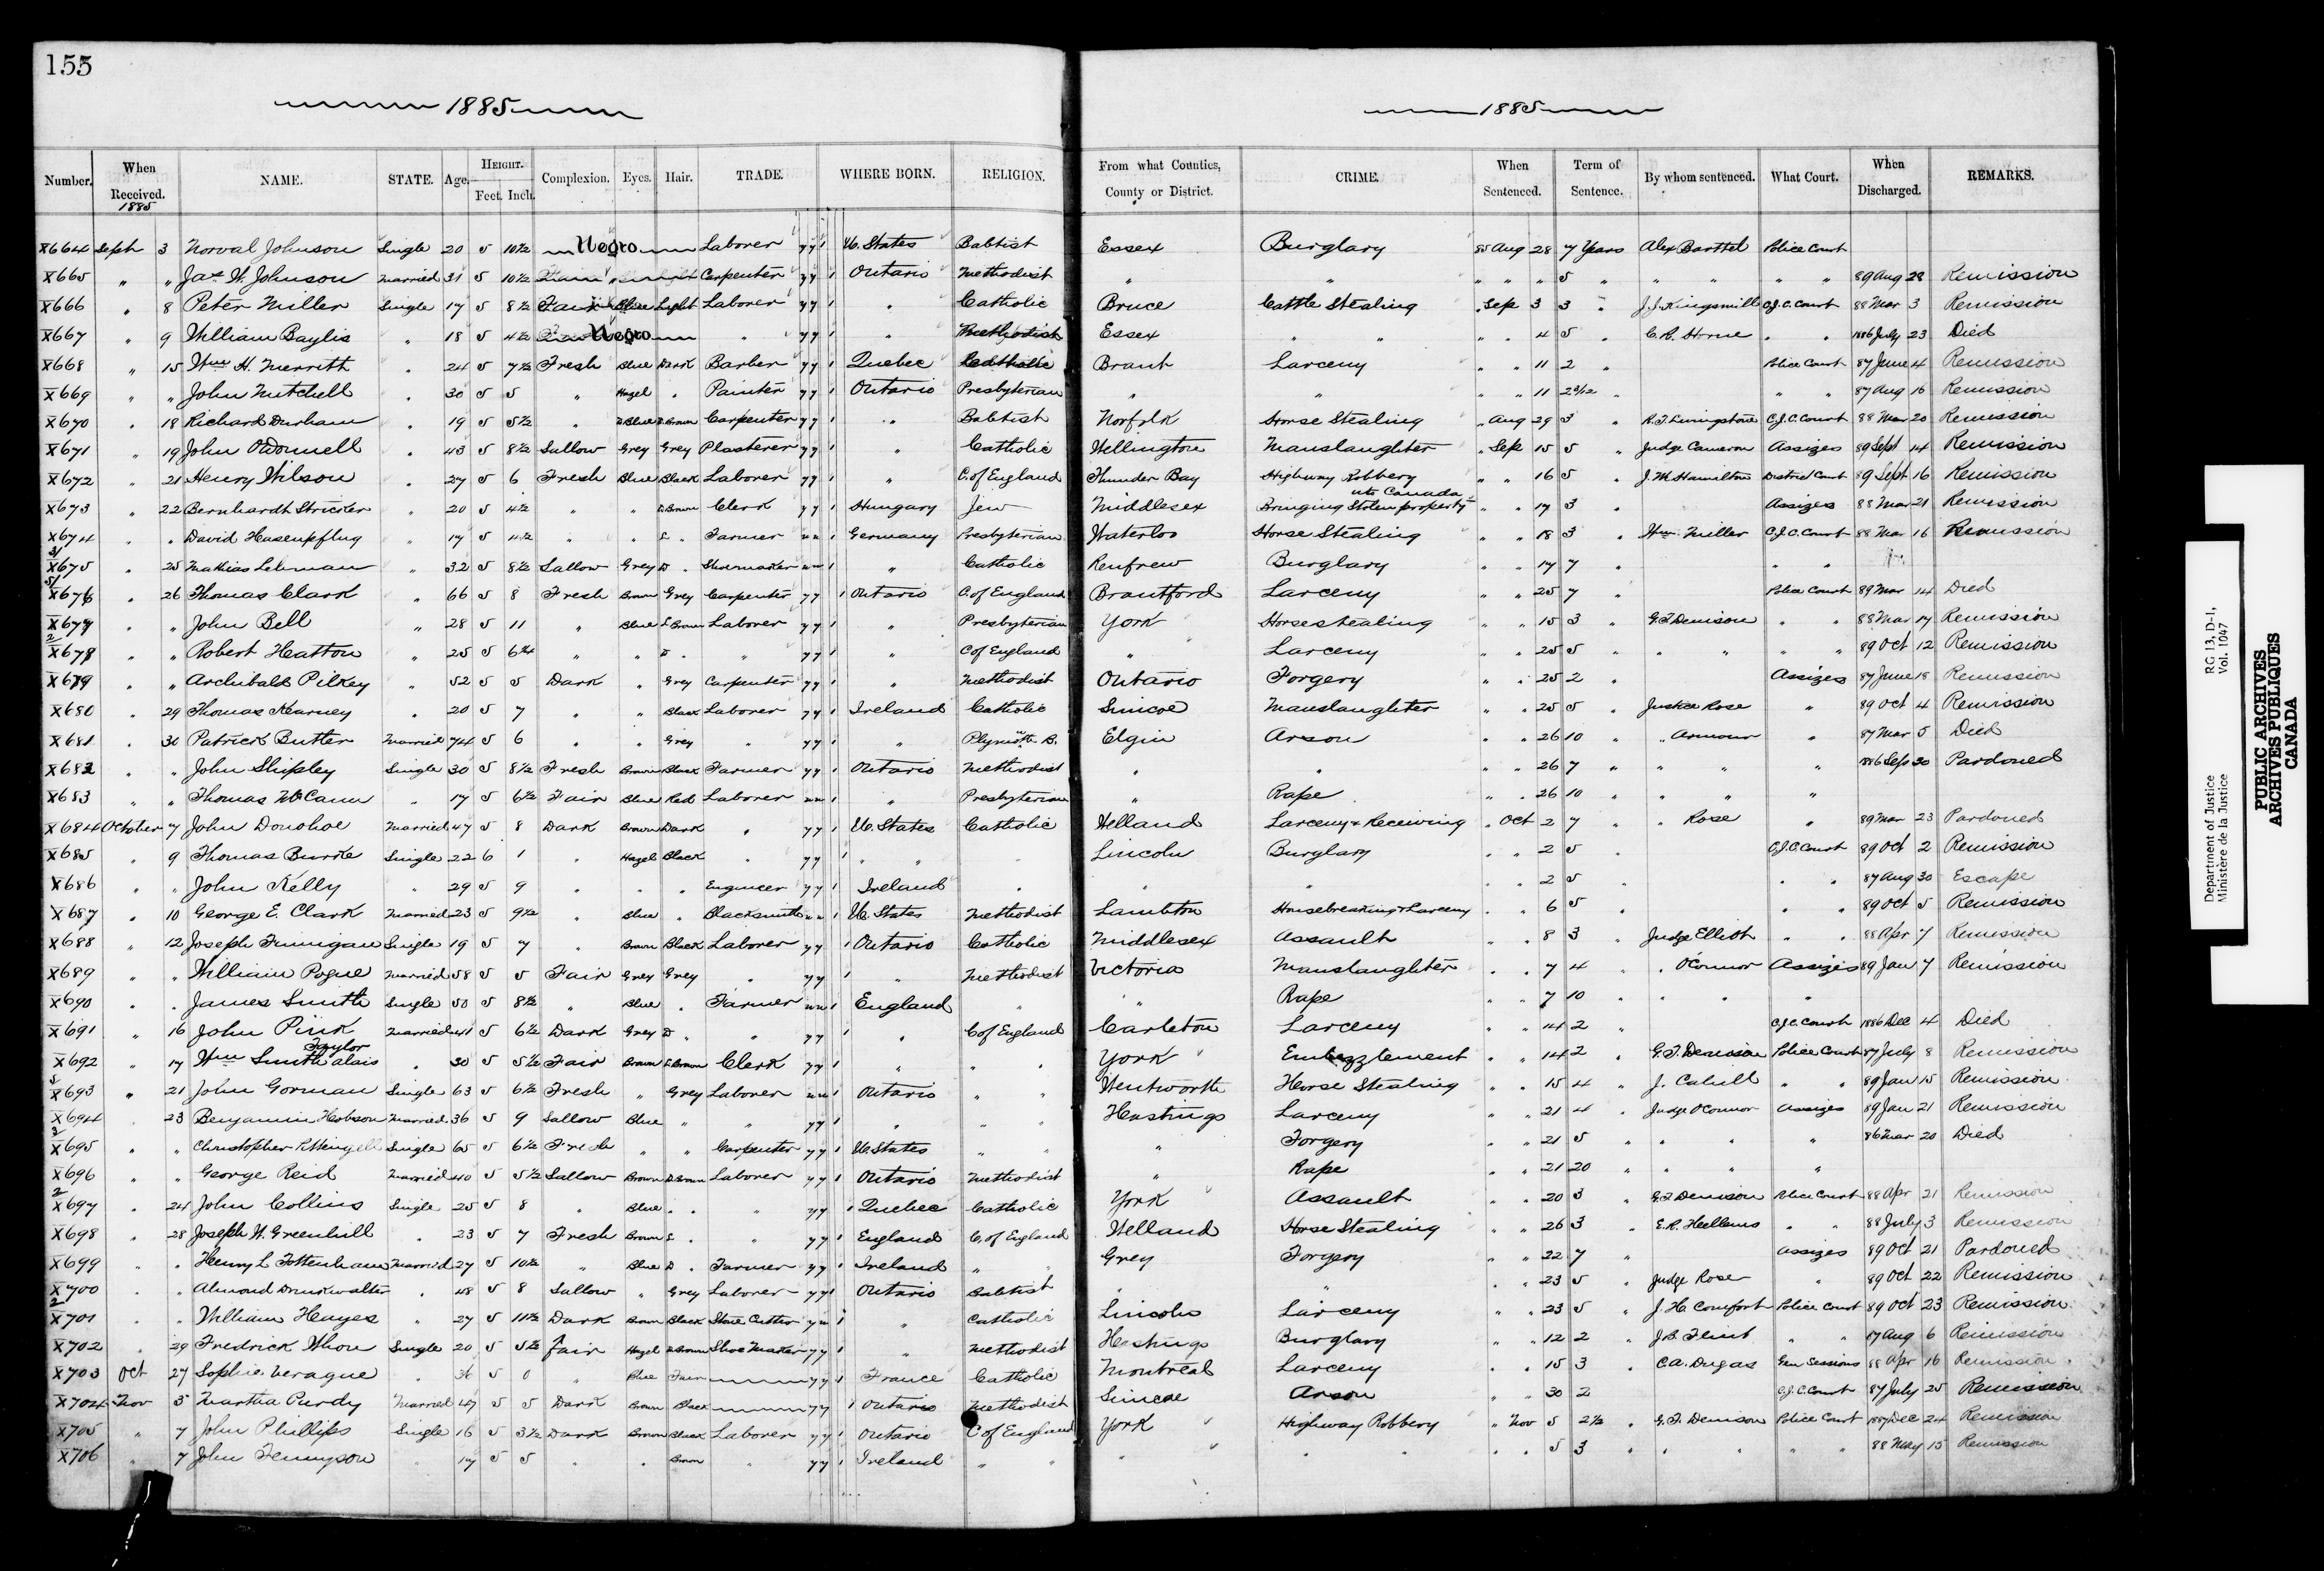 155
1885
1885
Number. When Received. 1885 NAME. STATE. Age. HEIGHT. Feet. Inch. Complexion. Eyes. Hair. TRADE. WHERE BORN. RELIGION. From what Counties, County or District. CRIME. When Sentenced. Term of Sentence. By whom sentenced. What Court. When Discharged. REMARKS.
X664 Sept 3 Norval Johnson Single 20 5 10½ Negro Laborer y y 1 U. States Babtist Essex Burglary 85 Aug 28 7 Years Alex Barttel Police Court
X665 " " Jas W. Johnson Married 31 5 10½ Carpenter y y 1 Ontario Methodist " " " " " 5 " " " " " 89 Aug 28 Remission
X666 " 8 Peter Miller Single 17 5 8½ Fair Blue Light Laborer y y 1 " Catholic Bruce Cattle Stealing " Sep 3 3 " J.J. Kingsmill C.J.C. Court 88 Mar 3 Remission
X667 " 9 William Baylis " 18 5 4½ Negro " y y 1 " Methodist Essex " " " " 4 5 " C.R. Horne " " 1886 July 23 Died
X668 " 15 Wm H. Merrith " 24 5 7½ Fresh Blue Dark Barber y y 1 Quebec Catholic Brant Larceny " " 11 2 " Police Court 87 June 4 Remission
X669 " " John Mitchell " 30 5 5 " Hazel " Painter y y 1 Ontario Presbyterian " " " " 11 " " " 87 Aug 16 Remission
X670 " 18 Richard Durham " 19 5 5½ " D Blue D. Brown Carpenter y y 1 " Babtist Norfolk Horse Stealing " Aug 29 3 " R.T. Livingstone C.J.C. Court 88 Mar 20 Remission
X671 " 19 John O'Donnell " 43 5 8½ Sallow Grey Grey Plasterer y y 1 " Catholic Wellington Manslaughter " Sep 15 5 " Judge Cameron Assizes 89 Sept 14 Remission
X672 " 21 Henry Wilson " 27 5 6 Fresh Blue Black Laborer y y 1 " C. of England Thunder Bay Highway Robbery " " 16 5 " J.M. Hamilton District Court 89 Sept 16 Remission
X673 " 22 Bernhardt Stricker " 20 5 4½ " " L Brown Clerk y y 1 Hungary Jew Middlesex Bringing Stolen property into Canada " " 17 3 " Assizes 88 Mar 21 Remission
X674 " " David Hasenpflug " 17 5 4½ " " L " Farmer n n 1 Germany Presbyterian Waterloo Horse Stealing " " 18 3 " Wm. Miller C.J.C. Court 88 Mar 16 Remission
X675 " 25 Mathias Lehman " 32 5 8½ Sallow Grey D " Shoemaker n n 1 " Catholic Renfrew Burglary " " 17 7 " " "
X676 " 26 Thomas Clark " 66 5 8 Fresh Brown Grey Carpenter y y 1 Ontario C. of England Brantford Larceny " " 25 7 " Police Court 89 Mar 14 Died
X677 " " John Bell " 28 5 11 " Blue L Brown Laborer y y 1 " Presbyterian York Horsestealing " " 15 3 " G.T. Denison " " 88 Mar 17 Remission
X678 " " Robert Hatton " 25 5 6¾ " " D " " y y 1 " C of England " Larceny " " 25 5 " " " " " 89 Oct 12 Remission
X679 " " Archibald Pilkey " 52 5 5 Dark " Grey Carpenter y y 1 " Methodist Ontario Forgery " " 25 2 " Assizes 87 June 18 Remission
X680 " 29 Thomas Kearney " 20 5 7 " " Black Laborer y y 1 Ireland Catholic Simcoe Manslaughter " " 25 5 " Justice Rose " 89 Oct 4 Remission
X681 " 30 Patrick Butler Married 74 5 6 " " Grey " y y 1 " Plymouth B. Elgin Arson " " 26 10 " " Armour " 87 Mar 5 Died
X682 " " John Shipley Single 30 5 8½ Fresh Brown Black Farmer y y 1 Ontario Methodist " " " " 26 7 " " " " 1886 Sep 30 Pardoned
X683 " " Thomas McCann " 17 5 6½ Fair Blue Red Laborer n n 1 " Presbyterian " Rape " " 26 10 " " " "
X684 October 7 John Donohoe Married 47 5 8 Dark Brown Dark " y y 1 U. States Catholic Welland Larceny & Receiving " Oct 2 7 " " Rose " 89 Mar 23 Pardoned
X685 " 9 Thomas Burke Single 22 6 1 " Hazel Black " y y 1 " " " Lincoln Burglary " " 2 5 " C.J.C Court 89 Oct 2 Remission
X686 " " John Kelly " 29 5 9 " " " Engineer y y 1 Ireland " " " " " 2 5 " " " 87 Aug 30 Escape
X687 " 10 George E. Clark Married 23 5 9½ " Blue " Blacksmith n n 1 U. States Methodist Lambton Housebreaking & Larceny " " 6 5 " " " 89 Oct 5 Remission
X688 " 12 Joseph Finnigan Single 19 5 7 " Brown Black Laborer y y 1 Ontario Catholic Middlesex Assault " " 8 3 " Judge Elliot " " 88 Apr 7 Remission
X689 " " William Pogue Married 58 5 5 Fair Grey Grey " y y 1 " Methodist Victoria Manslaughter " " 7 4 " " O'Connor Assizes 89 Jan 7 Remission
X690 " " James Smith Single 50 5 8½ " Blue " Farmer n n 1 England " " Rape " " 7 10 " " " "
X691 " 16 John Pink Married 41 5 6½ Dark Grey D " " y y 1 " C of England Carleton Larceny " " 14 2 " C.J.C. Court 1886 Dec 4 Died
X692 " 17 Wm Smith alais Taylor " 30 5 5½ Fair Brown L Brown Clerk y y 1 " " " York Embezzlement " " 14 2 " G.T. Denison Police Court 87 July 8 Remission
X693 " 21 John Gorman Single 63 5 6½ Fresh " Grey Laborer n n 1 Ontario " " Wentworth Horse Stealing " " 15 4 " J. Cahill " " 89 Jan 15 Remission
X694 23 Benjamin Hobson Married 36 5 9 Sallow Blue " " y y 1 " " " Hastings Larceny " " 21 4 " Judge O'Connor Assizes 89 Jan 21 Remission
X695 " " Christopher Single 65 5 6½ Fresh " " Carpenter y y 1 U. States " " " Forgery " " 21 5 " " " " 86 Mar 20 Died
X696 " " George Reid Married 40 5 5½ Sallow Brown D. Brown Laborer y y 1 Ontario Methodist " Rape " " 21 20 " " " "
X697 " 24 John Collins Single 25 5 8 " Blue " " " y y 1 Quebec Catholic York Assault " " 20 3 " G.T. Denison Police Court 88 Apr 21 Remission
X698 " 28 Joseph W. Greenhill " 23 5 7 Fresh Brown L " " y y 1 England C. of England Welland Horse Stealing " " 26 3 " E.R. Hellems " " 88 July 3 Remission
X699 " " Henry L Tottenham Married 27 5 10½ " Blue D " Farmer y y 1 Ireland " " Grey Forgery " " 22 7 " Assizes 89 Oct 21 Pardoned
X700 " Almond Drinkwalter " 48 5 8 Sallow " Grey Laborer y y 1 Ontario Babtist " " " " 23 5 " Judge Rose " 89 Oct 22 Remission
X701 " William Hayes " 27 5 11½ Dark Brown Black Stone Cutter y n 1 " Catholic Lincoln Larceny " " 23 5 " J.H. Comfort Police Court 89 Oct 23 Remission
X702 " 29 Fredrick Whon Single 20 5 5½ Fair Hazel D Brown Shoe Maker y y 1 " Methodist Hastings Burglary " " 12 2 " J.B. Flint " " 87 Aug 6 Remission
X703 Oct 27 Sophie Veraque " 36 5 0 " Blue Fair y y 1 France Catholic Montreal Larceny " " 15 3 " C.A. Dugas Gen Sessions 88 Apr 16 Remission
X704 Nov 5 Martha Purdy Married 47 5 5 Dark Brown Black y y 1 Ontario Methodist Simcoe Arson " " 30 2 C.J.C. Court 87 July 25 Remission
X705 " 7 John Phillips Single 16 5 3½ Dark Brown Black Laborer y y 1 Ontario C of England York Highway Robbery " Nov 5 2½ " G.T. Denison Police Court 1887 Dec 24 Remission
X706 " 7 John Tennyson " 17 5 5 " " Brown " y y 1 Ireland " " " " " " " 5 3 " " " " " 88 May 15 Remission
Department of Justice
Ministère de la Justice
RG 13, D-1,
Vol. 1047
PUBLIC ARCHIVES
ARCHIVES PUBLIQUES
CANADA